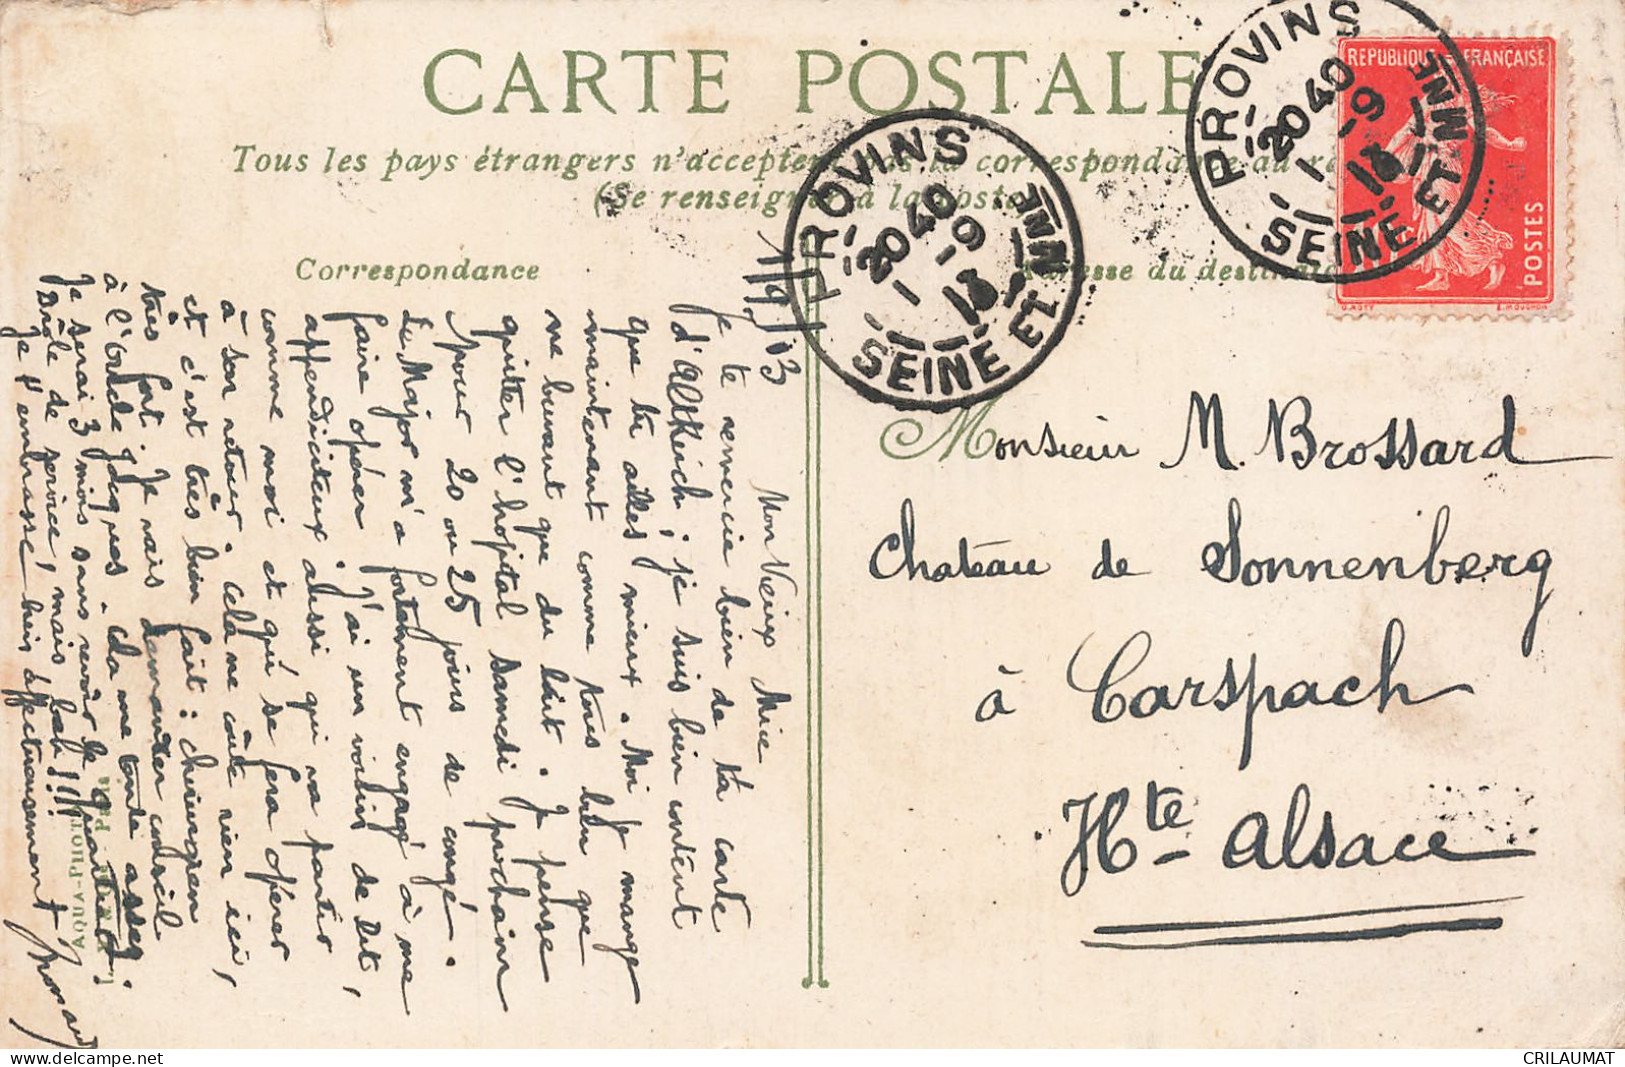 CARTE POSTALE
Tous les pays étrangers n'acceptent pas la correspondance au
(Se renseigner à la poste
Correspondance
Adresse du destinataire
PROVINS
20 40
1 - 9
13
SEINE ET MNE
PROVINS
20 40
1 - 9
13
SEINE ET MNE
REPUBLIQUE FRANÇAISE
POSTES
Monsieur M. Brossard
Chateau de Sonnenberg
à Carspach
Hte Alsace
1/9/13
Mon Vieux Mice
Je te remercie bien de ta carte
d'Altkirch ; je suis bien content
que tu ailles mieux. Moi je mange
maintenant comme tous bien que
ne buvant que du lait. Je pense
quitter l'hopital Samedi prochain
pour 20 ou 25 jours de congé.
Le Major m'a fortement engagé à me
faire opérer. J'ai un voisin de lit,
appendiciteux aussi qui va partir
comme moi et qui se fera opérer
à son retour. Cela ne coûte rien ici,
et c'est très bien fait : chirurgien
très fort. Je vais demander conseil
à l'Oncle Jacques. Cela me tente assez.
Je serai 3 mois sans revoir le quartier !
Drôle de service, mais bah !!!
Je t'embrasse bien affectueusement
Brossard
AQUA-PHOTO
CRILAUMAT